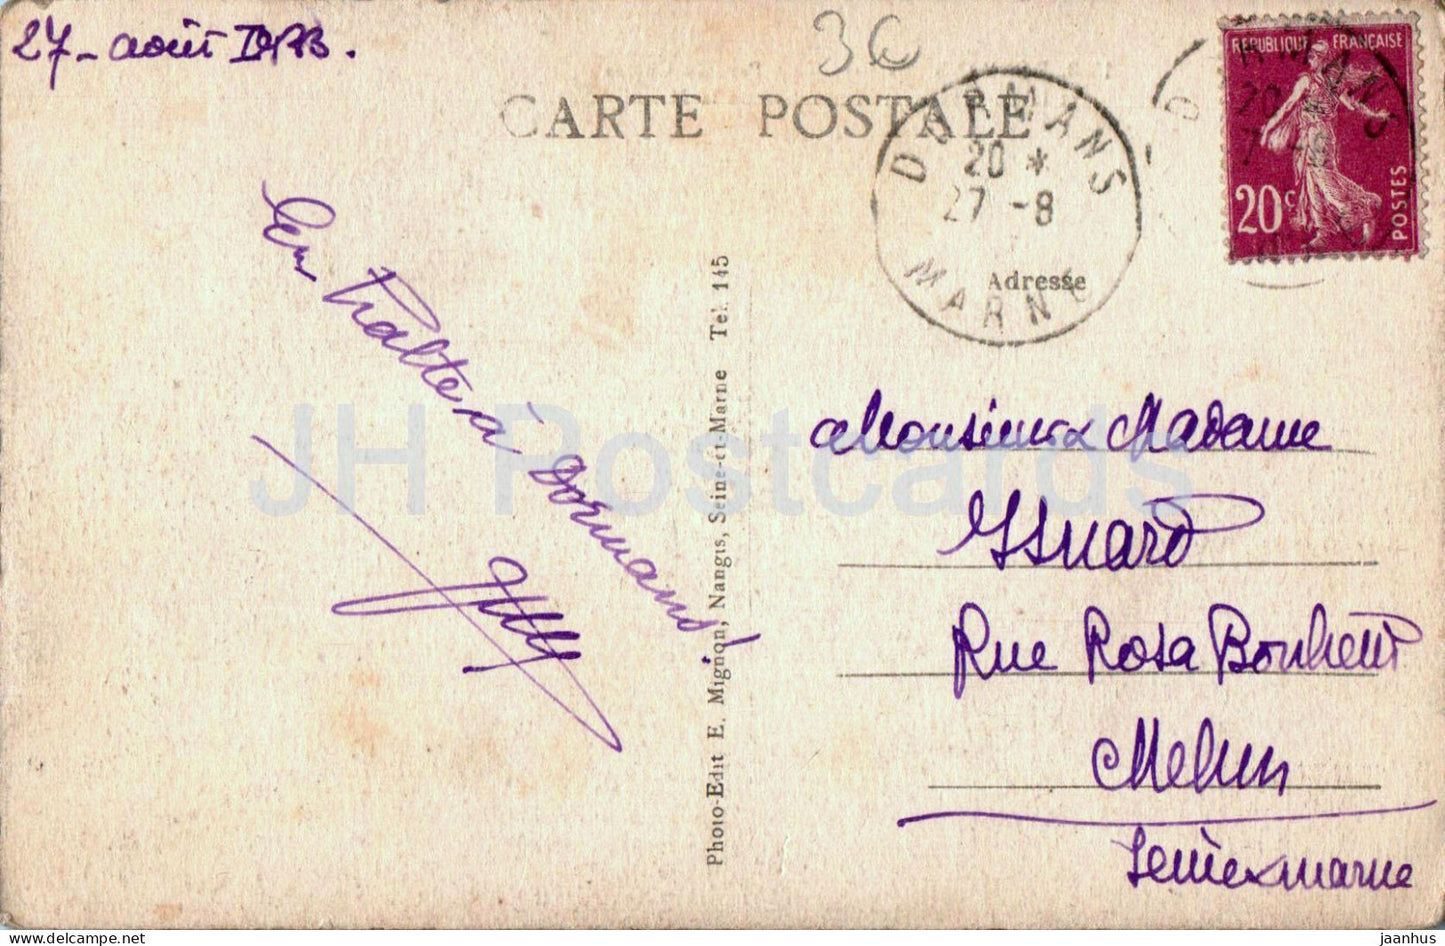 27 - août
36
CARTE POSTALE
DORMANS
20 *
27 -8
MARNE
REPUBLIQUE FRANÇAISE
20c
POSTES
Adresse
à Dormans
Photo-Edit E. Mignon, Nangis, Seine-et-Marne Tel. 145
Monsieur & Madame
Isnard
Rue Rosa Bonheur
Melun
Seine & marne
JH Postcards
delcampe.net
jaanhus